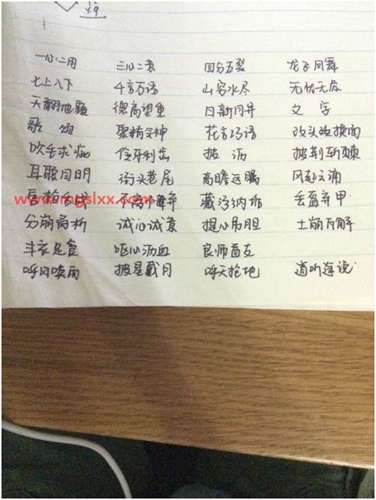 一心二用 三心二意 四分五裂 龙飞凤舞
七上八下 千言万语 山穷水尽 无忧无虑
天翻地覆 德高望重 日新月异 文字
歌颂 聚精会神 花言巧语 改头换面
吹毛求疵 伶牙利齿 披荆斩棘
耳聪目明 街头巷尾 高瞻远瞩 风起云涌
藏污纳垢 丢盔弃甲
分崩离析 诚心诚意 提心吊胆 土崩瓦解
丰衣足食 呕心沥血 良师益友
呼风唤雨 披星戴月 呼天抢地 道听途说